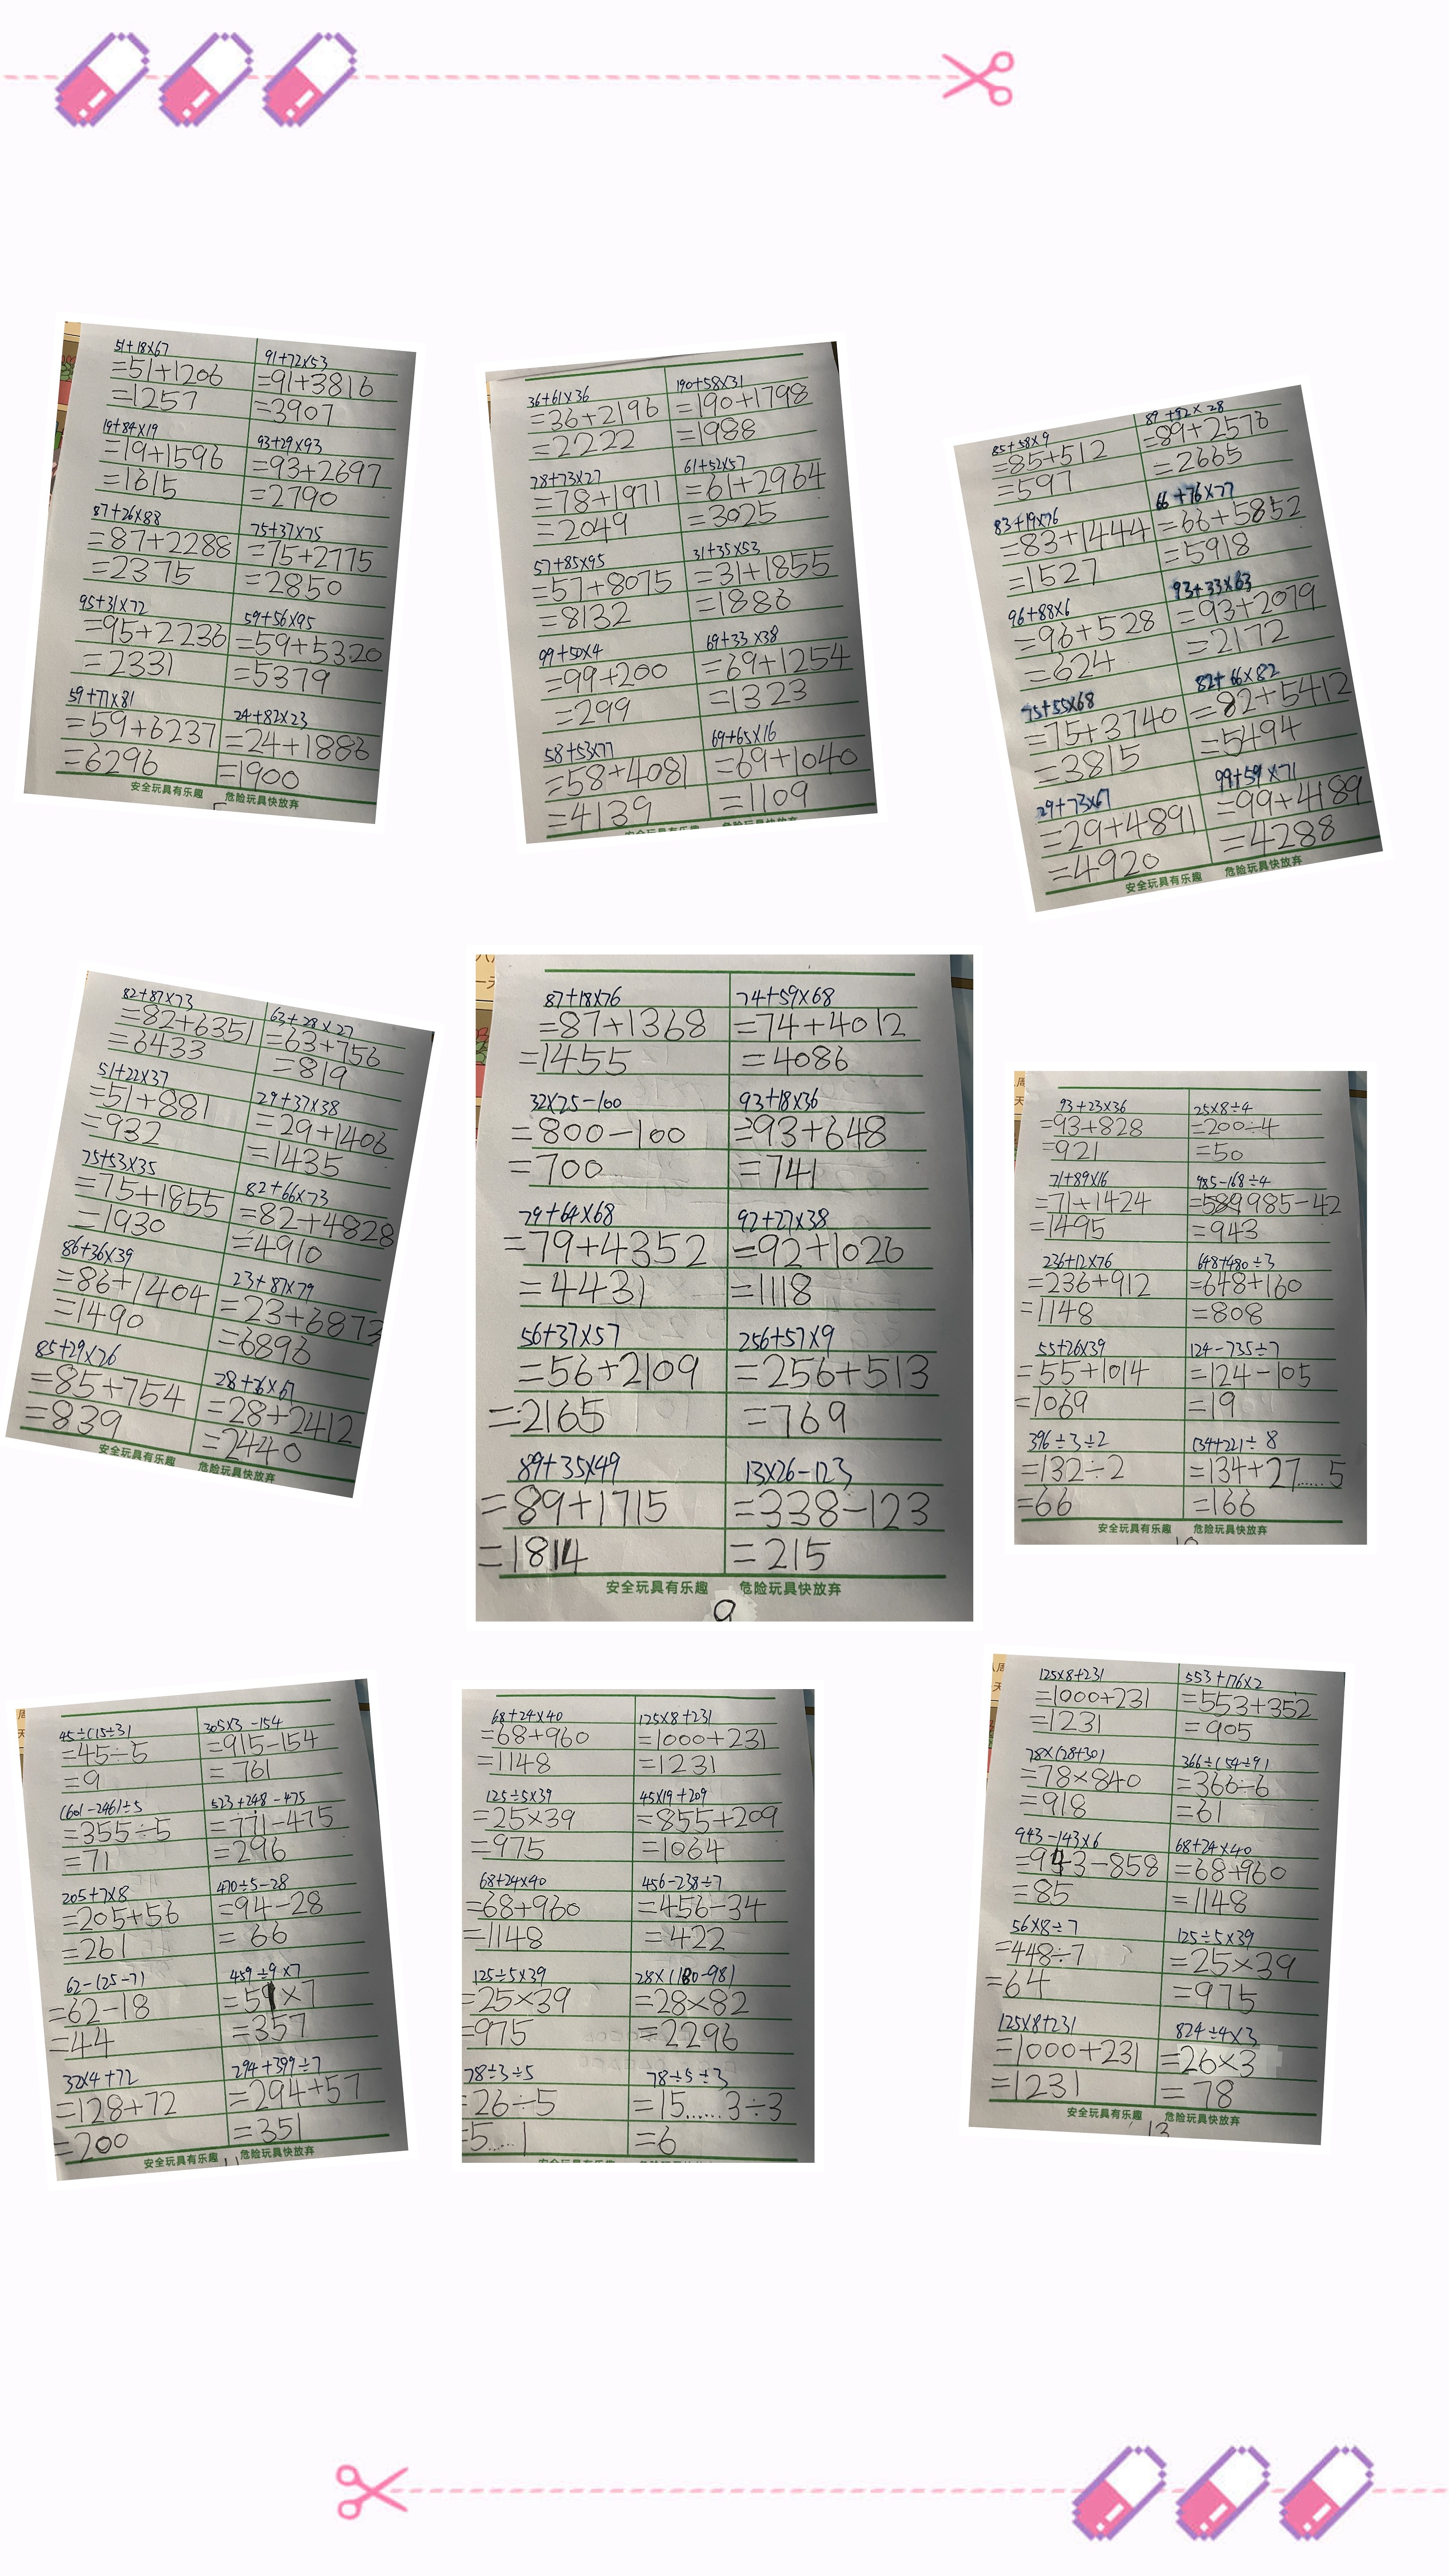 51+18×67
=51+1206
=1257
91+72×53
=91+3816
=3907
19+84×19
=19+1596
=1615
93+29×93
=93+2697
=2790
87+26×88
=87+2288
=2375
75+37×75
=75+2775
=2850
95+31×72
=95+2236
=2331
59+56×95
=59+5320
=5379
59+77×81
=59+6237
=6296
24+82×23
=24+1886
=1900
安全玩具有乐趣 危险玩具快放弃
36+61×36
=36+2196
=2222
190+58×31
=190+1798
=1988
78+73×27
=78+1971
=2049
61+52×57
=61+2964
=3025
57+85×95
=57+8075
=8132
31+35×53
=31+1855
=1886
99+50×4
=99+200
=299
69+33×38
=69+1254
=1323
58+53×77
=58+4081
=4139
69+65×16
=69+1040
=1109
安全玩具有乐趣 危险玩具快放弃
85+58×9
=85+512
=597
89+92×28
=89+2576
=2665
83+19×76
=83+1444
=1527
66+76×77
=66+5852
=5918
96+88×6
=96+528
=624
93+33×63
=93+2079
=2172
75+55×68
=75+3740
=3815
82+66×82
=82+5412
=5494
29+73×67
=29+4891
=4920
99+59×71
=99+4189
=4288
安全玩具有乐趣 危险玩具快放弃
82+87×73
=82+6351
=6433
63+28×27
=63+756
=819
51+22×37
=51+881
=932
29+37×38
=29+1406
=1435
75+53×35
=75+1855
=1930
82+66×73
=82+4828
=4910
86+36×39
=86+1404
=1490
23+87×79
=23+6873
=6896
85+29×26
=85+754
=839
28+36×67
=28+2412
=2440
安全玩具有乐趣 危险玩具快放弃
87+18×76
=87+1368
=1455
74+59×68
=74+4012
=4086
32×25-100
=800-100
=700
93+18×36
=93+648
=741
79+64×68
=79+4352
=4431
92+27×38
=92+1026
=1118
56+37×57
=56+2109
=2165
256+57×9
=256+513
=769
89+35×49
=89+1715
=1814
13×26-123
=338-123
=215
安全玩具有乐趣 危险玩具快放弃
9
93+23×36
=93+828
=921
25×8÷4
=200÷4
=50
71+89×16
=71+1424
=1495
985-168÷4
=985-42
=943
236+12×76
=236+912
=1148
648+480÷3
=648+160
=808
55+26×39
=55+1014
=1069
124-735÷7
=124-105
=19
396÷3÷2
=132÷2
=66
134+221÷8
=134+27……5
=166
安全玩具有乐趣 危险玩具快放弃
45÷(15÷3)
=45÷5
=9
305×3-154
=915-154
=761
(601-246)÷5
=355÷5
=71
523+248-475
=771-475
=296
205+7×8
=205+56
=261
470÷5-28
=94-28
=66
62-(25-7)
=62-18
=44
459÷9×7
=51×7
=357
32×4+72
=128+72
=200
294+399÷7
=294+57
=351
安全玩具有乐趣 危险玩具快放弃
11
68+24×40
=68+960
=1148
125×8+231
=1000+231
=1231
125÷5×39
=25×39
=975
45×19+209
=855+209
=1064
68+24×40
=68+960
=1148
456-238÷7
=456-34
=422
125÷5×39
=25×39
=975
28×(180-98)
=28×82
=2296
78÷3÷5
=26÷5
=5……1
78÷5÷3
=15……3÷3
=6
125×8+231
=1000+231
=1231
553+176×2
=553+352
=905
78×(28+30)
=78×840
=918
366÷(54÷9)
=366÷6
=61
943-143×6
=943-858
=85
68+24×40
=68+960
=1148
56×8÷7
=448÷7
=64
125÷5×39
=25×39
=975
125×8+231
=1000+231
=1231
824÷4×3
=26×3
=78
安全玩具有乐趣 危险玩具快放弃
13